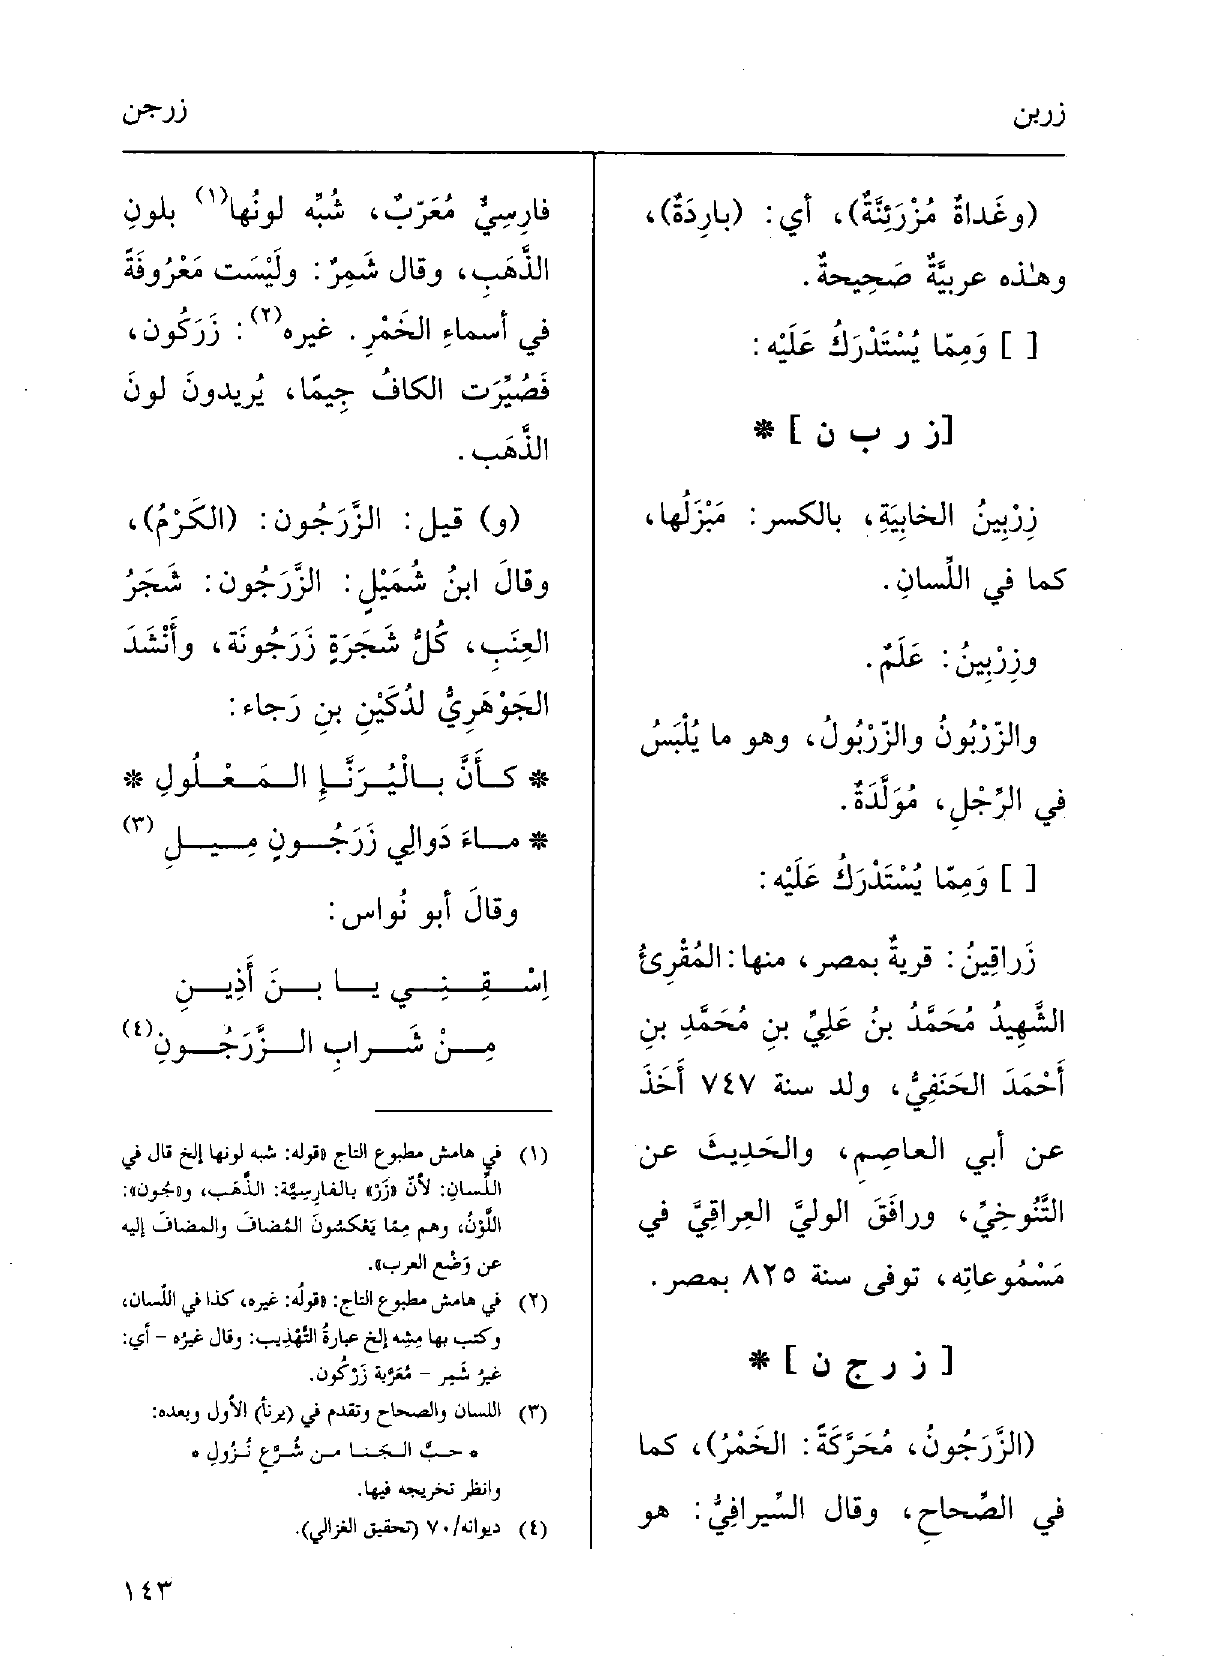 زربن
زرجن
(وغَداةٌ مُزْرَئِنَّةٌ)، أي: (بارِدَةٌ)،
وهٰذه عربيَّةٌ صَحِيحةٌ.
[ ] وَمِمّا يُسْتَدْرَكُ عَلَيْه:
[ز ر ب ن ] *
زِرْبِينُ الخابِيَةِ، بالكسر: مَبْزَلُها،
كما في اللِّسانِ.
وزِرْبِينُ: عَلَمٌ.
والزّرْبُونُ والزّرْبُولُ، وهو ما يُلْبَسُ
في الرِّجْلِ، مُوَلَّدَةٌ.
[ ] وَمِمّا يُسْتَدْرَكُ عَلَيْه:
زَراقِينُ: قريةٌ بمصر، منها: المُقْرِئُ
الشَّهِيدُ مُحَمَّدُ بنُ عَلِيِّ بنِ مُحَمَّدِ بنِ
أَحْمَدَ الحَنَفِيُّ، ولد سنة ٧٤٧ أَخَذَ
عن أبي العاصِمِ، والحَدِيثَ عن
التَّنُوخِيِّ، ورافَقَ الوليَّ العِراقِيَّ في
مَسْمُوعاتِه، توفى سنة ٨٢٥ بمصر.
[ ز ر ج ن ] *
(الزَّرَجُونُ، مُحَرَّكَةً: الخَمْرُ)، كما
في الصِّحاحِ، وقال السِّيرافِيُّ: هو
فارِسِيٌّ مُعَرّبٌ، شُبِّه لونُها(١) بلونِ
الذَّهَبِ، وقال شَمِرٌ: ولَيْسَت مَعْرُوفَةً
في أسماءِ الخَمْرِ. غيره(٢): زَرَكُون،
فَصُيِّرَت الكافُ جِيمًا، يُريدونَ لونَ
الذَّهَب.
(و) قيل: الزَّرَجُون: (الكَرْمُ)،
وقالَ ابنُ شُمَيْلٍ: الزَّرَجُون: شَجَرُ
العِنَبِ، كُلُّ شَجَرَةٍ زَرَجُونَة، وأَنْشَدَ
الجَوْهَرِيُّ لدُكَيْنِ بنِ رَجاء:
* كـأَنَّ بـالْيُـرَنَّـإِ الـمَـعْـلُولِ *
* مـاءَ دَوالِي زَرَجُـونٍ مِـيـلِ (٣)
وقالَ أبو نُواس:
اِسْـقِـنِـي يـا بـنَ أَذِيـنِ
مِـنْ شَـرابِ الـزَّرَجُـونِ(٤)
(١) في هامش مطبوع التاج «قوله: شبه لونها إلخ قال في
اللِّسان: لأنّ «زَرْ» بالفارِسِيَّة: الذَّهَب، و«جُون»:
اللَّوْنُ، وهم مِمّا يَعْكسُونَ المُضافَ والمضافَ إليه
عن وَضْعِ العرب».
(٢) في هامش مطبوع التاج: «قولُه: غيره، كذا في اللّسان،
وكتب بها مشِه إلخ عبارةُ التَّهْذِيب: وقال غيرُه - أي:
غيرُ شَمِر - مُعَرَّبة زَرْكُون.
(٣) اللسان والصحاح وتقدم في (يرنأ) الأول وبعده:
* حـبُّ الـجَـنـا مـن شُـرَّعٍ نُـزُولِ *
وانظر تخريجه فيها.
(٤) ديوانه/٧٠ (تحقيق الغزالي).
١٤٣